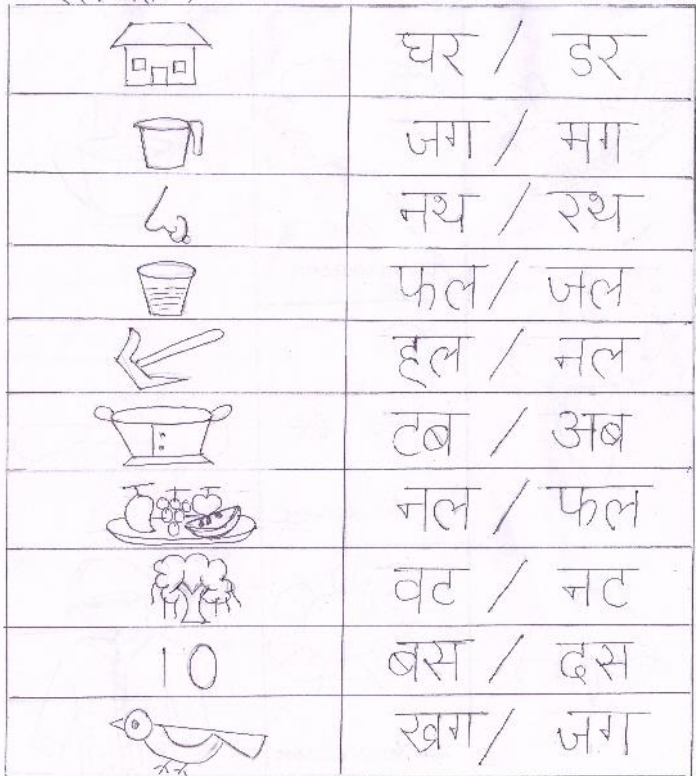 घर / डर
जग / मग
नथ / रथ
फल / जल
हल / नल
टब / अब
नल / फल
वट / नट
10 बस / दस
खग / जग